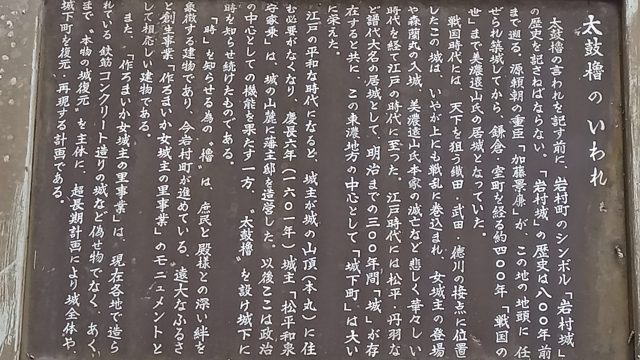 太鼓櫓のいわれ
太鼓櫓の言われを記す前に、岩村町のシンボル「岩村城」
の歴史を記さねばならない。「岩村城」の歴史は八〇〇年前
まで遡る。源頼朝の重臣「加藤景廉」が、この地の地頭に任
せられ築城してから、鎌倉・室町を経る約四〇〇年「戦国の
世」まで美濃遠山氏の居城となっていた。
戦国時代には、天下を狙う織田・武田・徳川の接点に位置
したこの城は、いやが上にも戦乱に巻込まれ、女城主の登場
や森蘭丸の入城、美濃遠山氏本家の滅亡など悲しく華々しい
時代を経て江戸の時代に至った。江戸時代には松平・丹羽な
ど譜代大名の居城として、明治までの三〇〇年間「城」が存
在すると共に、この東濃地方の中心として「城下町」は大い
に栄えた。
江戸の平和な時代になると、城主が城の山頂（本丸）に住
む必要がなくなり、慶長六年（一六〇一年）城主「松平和泉
守家乗」は、城の山麓に藩主邸を造営した。以後ここは政治
の中心としての機能を果たす一方、〝太鼓櫓〟を設け城下に
時を知らせ続けたものである。
「時」を知らせる為の〝櫓〟は、庶民と殿様との深い絆を
象徴する建物であり、今岩村町が進めている、遠大なふるさ
と創生事業「作ろまいか女城主の里事業」のモニュメントと
して相応しい建物である。
また、「作ろまいか女城主の里事業」は、現在各地で造ら
れている鉄筋コンクリート造りの城など偽せ物でなく、あく
まで〝本物の城復元〟を主体に、超長期計画により城全体や、
城下町を復元・再現する計画である。